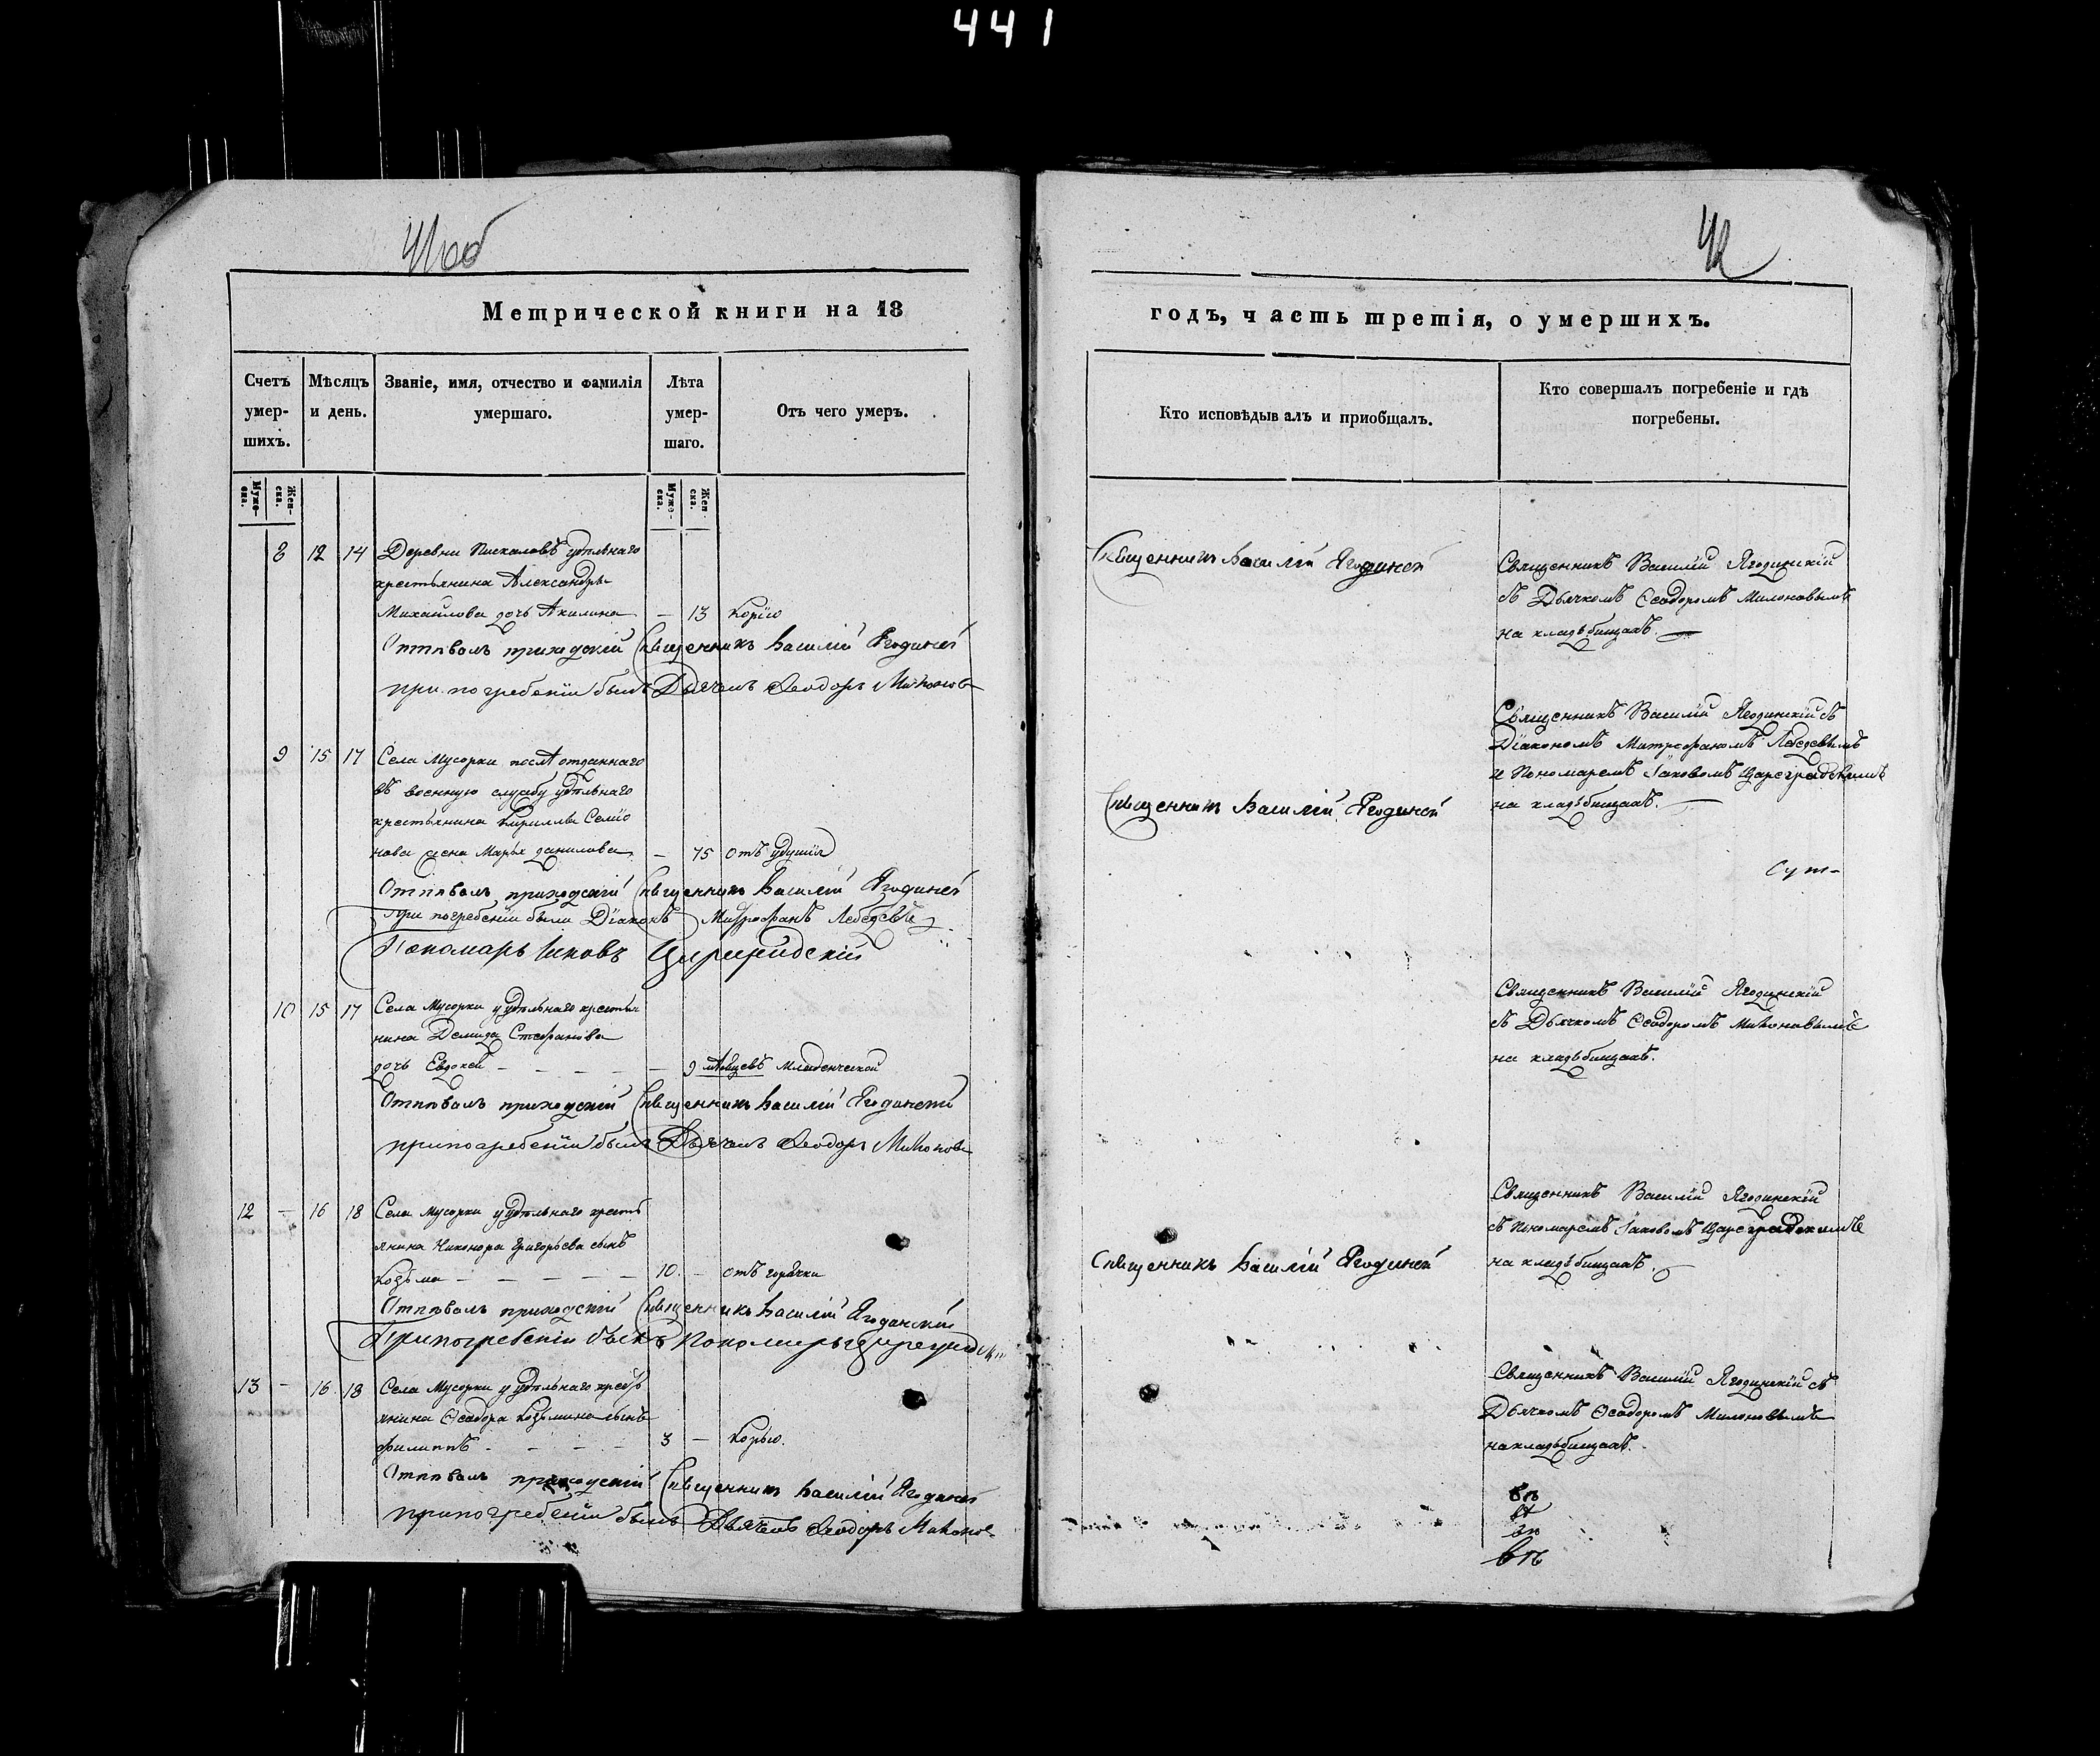 441
41 об
42
Метрической книги на 18
годъ, часть третія, о умершихъ.
Счетъ умер-шихъ.
Мѣсяцъ и день.
Званіе, имя, отчество и фамилія умершаго.
Лѣта умер-шаго.
Отъ чего умеръ.
Кто исповѣдывалъ и приобщалъ.
Кто совершалъ погребеніе и гдѣ погребены.
Муже-ска.
Жен-ска.
Муже-ска.
Жен-ска.
8 12 14 Деревни Пискаловъ удѣльнаго
крестьянина Александра
Михайлова дочь Акилина — 13 Корію
Отпѣвалъ приходскій Священникъ Василій Ягодинскій
при погребеніи былъ Дьячекъ Феодоръ Милоновъ
Священникъ Василій Ягодинской
Священникъ Василій Ягодинскій
съ Дьячкомъ Ѳеодоромъ Милоновымъ
на кладьбищахъ.
9 15 17 Села Мусорки послѣ отданнаго
въ военную службу удѣльнаго
крестьянина Кириллы Семіо
нова жена Марья данилова — 75 отъ удушія
Отпѣвалъ приходскій Священникъ Василій Ягодинскій
При погребеніи были Діаконъ Митрофанъ Лебедевъ
Пономарь Іаковъ Цареградскій
Священникъ Василій Ягодинской
Священникъ Василій Ягодинскій съ
Діакономъ Митрофаномъ Лебедевымъ
и Пономаремъ Іаковомъ Цареградскимъ
на кладьбищахъ.
10 15 17 Села Мусорки удѣльнаго крестья
нина Демида Стефанова
дочь Евдокея — 9 мѣсяцевъ Младенческой
Отпѣвалъ приходскій Священникъ Василій Ягодинскій
при погребеніи былъ Дьячекъ Феодоръ Милоновъ
Священникъ Василій Ягодинскій
съ Дьячкомъ Ѳеодоромъ Милоновымъ
на кладьбищахъ.
12 — 16 18 Села Мусорки удѣльнаго кресть
янина Никонора Григорьева сынъ
Козьма — 10 — отъ горячки
Отпѣвалъ приходскій Священникъ Василій Ягодинскій
При погребеніи былъ Пономарь Цареградскій
Священникъ Василій Ягодинской
Священникъ Василій Ягодинскій
съ Пономаремъ Іаковомъ Цареградскимъ
на кладьбищахъ.
13 — 16 18 Села Мусорки удѣльнаго кресть
янина Ѳеодора Козьмина сынъ
Филиппъ — 3 — Корью.
Отпѣвалъ приходскій Священникъ Василій Ягодинскій
при погребеніи былъ Дьячекъ Феодоръ Милоновъ
Священникъ Василій Ягодинскій съ
Дьячкомъ Ѳеодоромъ Милоновымъ
на кладьбищахъ.